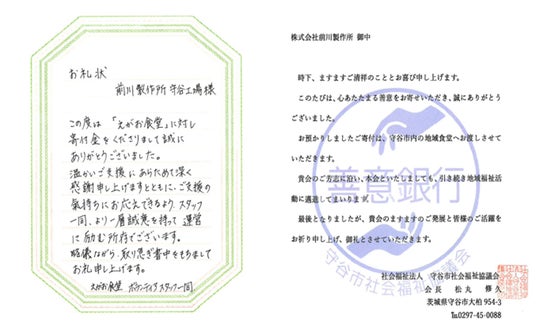 お礼状
前川製作所 守谷工場様
この度は「えがお食堂」に対し
寄付金をくださりまして誠に
ありがとうございました。
温かいご支援にあらためて深く
感謝申し上げますとともに、ご支援の
気持ちにお応えできるよう、スタッフ
一同、より一層誠意を持って運営
に励む所存でございます。
略儀ながら、取り急ぎ書中をもちまして
お礼申し上げます。
えがお食堂 ボランティアスタッフ一同
株式会社前川製作所 御中
時下、ますますご清祥のこととお喜び申し上げます。
このたびは、心あたたまる善意をお寄せいただき、誠にありがとう
ございました。
お預かりしましたご寄付は、守谷市内の地域食堂へお渡しさせて
いただきます。
貴会のご芳志に沿い、本会といたしましても、引き続き地域福祉活
動に邁進してまいります。
最後となりましたが、貴会のますますのご発展と皆様のご活躍を
お祈り申し上げ、御礼とさせていただきます。
善意銀行
守谷市社会福祉協議会
社会福祉法人 守谷市社会福祉協議会
会長 松丸 修久
茨城県守谷市大柏 954-3
℡0297-45-0088